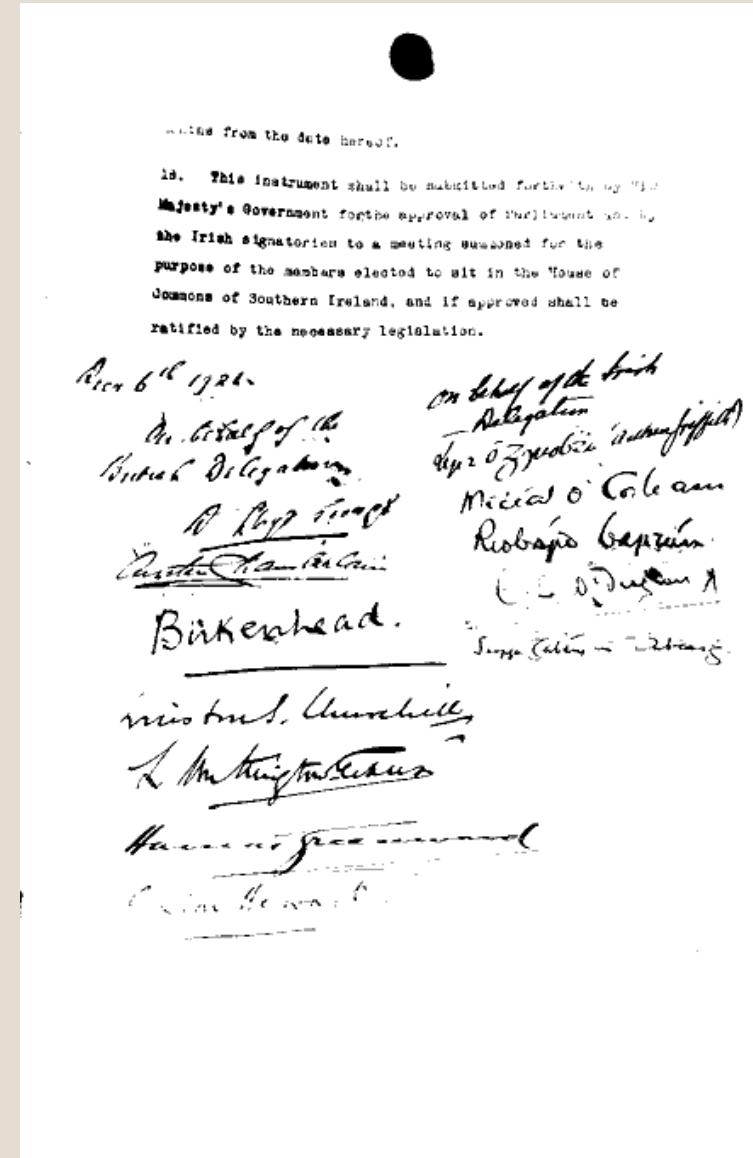 from the date hereof.
18. This instrument shall be submitted forthwith by His
Majesty's Government forthe approval of Parliament and by
the Irish signatories to a meeting summoned for the
purpose of the members elected to sit in the House of
Commons of Southern Ireland, and if approved shall be
ratified by the necessary legislation.
Decr 6th 1921.
On behalf of the
British Delegation
D Lloyd George
Austen Chamberlain
Birkenhead.
Winston S. Churchill
L Worthington-Evans
Hamar Greenwood
Gordon Hewart
On behalf of the Irish
Delegation
(Arthur Griffith)
Mícéal Ó Coileain
Riobárd Bartún